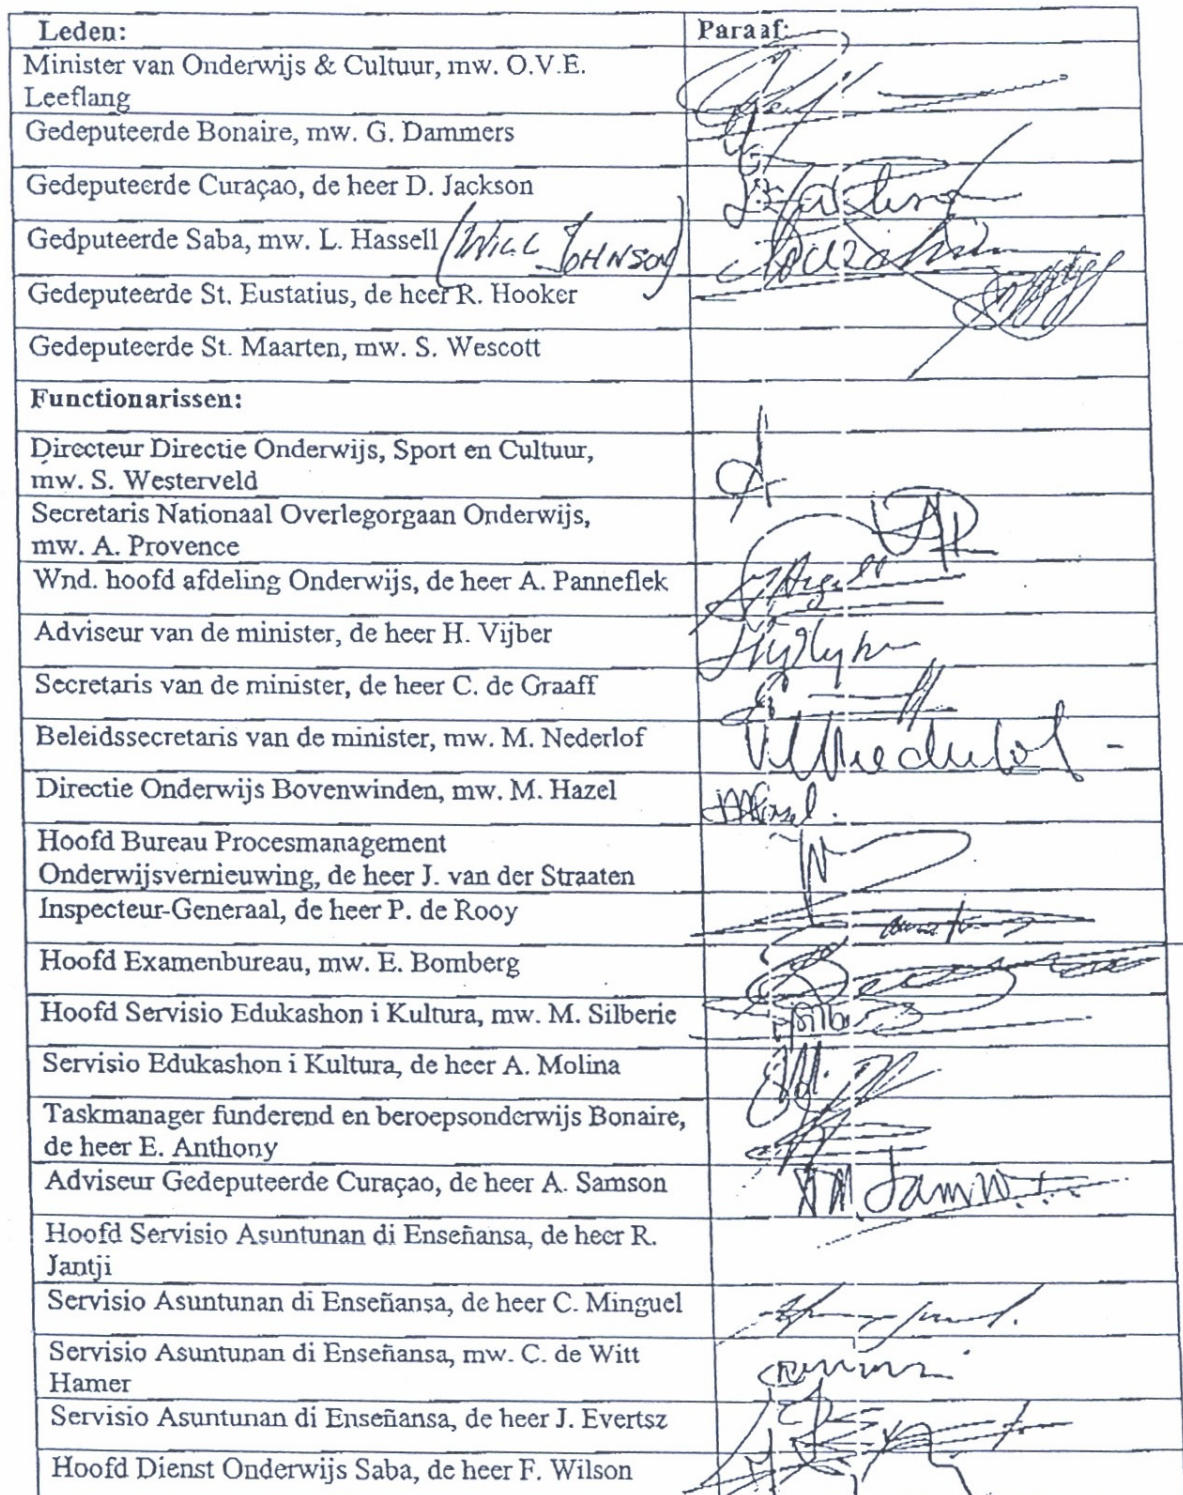 Leden: Paraaf:
Minister van Onderwijs & Cultuur, mw. O.V.E.
Leeflang
Gedeputeerde Bonaire, mw. G. Dammers
Gedeputeerde Curaçao, de heer D. Jackson
Gedputeerde Saba, mw. L. Hassell (WILL JOHNSON)
Gedeputeerde St. Eustatius, de heer R. Hooker
Gedeputeerde St. Maarten, mw. S. Wescott
Functionarissen:
Directeur Directie Onderwijs, Sport en Cultuur,
mw. S. Westerveld
Secretaris Nationaal Overlegorgaan Onderwijs,
mw. A. Provence
Wnd. hoofd afdeling Onderwijs, de heer A. Panneflek
Adviseur van de minister, de heer H. Vijber
Secretaris van de minister, de heer C. de Graaff
Beleidssecretaris van de minister, mw. M. Nederlof
Directie Onderwijs Bovenwinden, mw. M. Hazel
Hoofd Bureau Procesmanagement
Onderwijsvernieuwing, de heer J. van der Straaten
Inspecteur-Generaal, de heer P. de Rooy
Hoofd Examenbureau, mw. E. Bomberg
Hoofd Servisio Edukashon i Kultura, mw. M. Silberie
Servisio Edukashon i Kultura, de heer A. Molina
Taskmanager funderend en beroepsonderwijs Bonaire,
de heer E. Anthony
Adviseur Gedeputeerde Curaçao, de heer A. Samson
Hoofd Servisio Asuntunan di Enseñansa, de heer R.
Jantji
Servisio Asuntunan di Enseñansa, de heer C. Minguel
Servisio Asuntunan di Enseñansa, mw. C. de Witt
Hamer
Servisio Asuntunan di Enseñansa, de heer J. Evertsz
Hoofd Dienst Onderwijs Saba, de heer F. Wilson